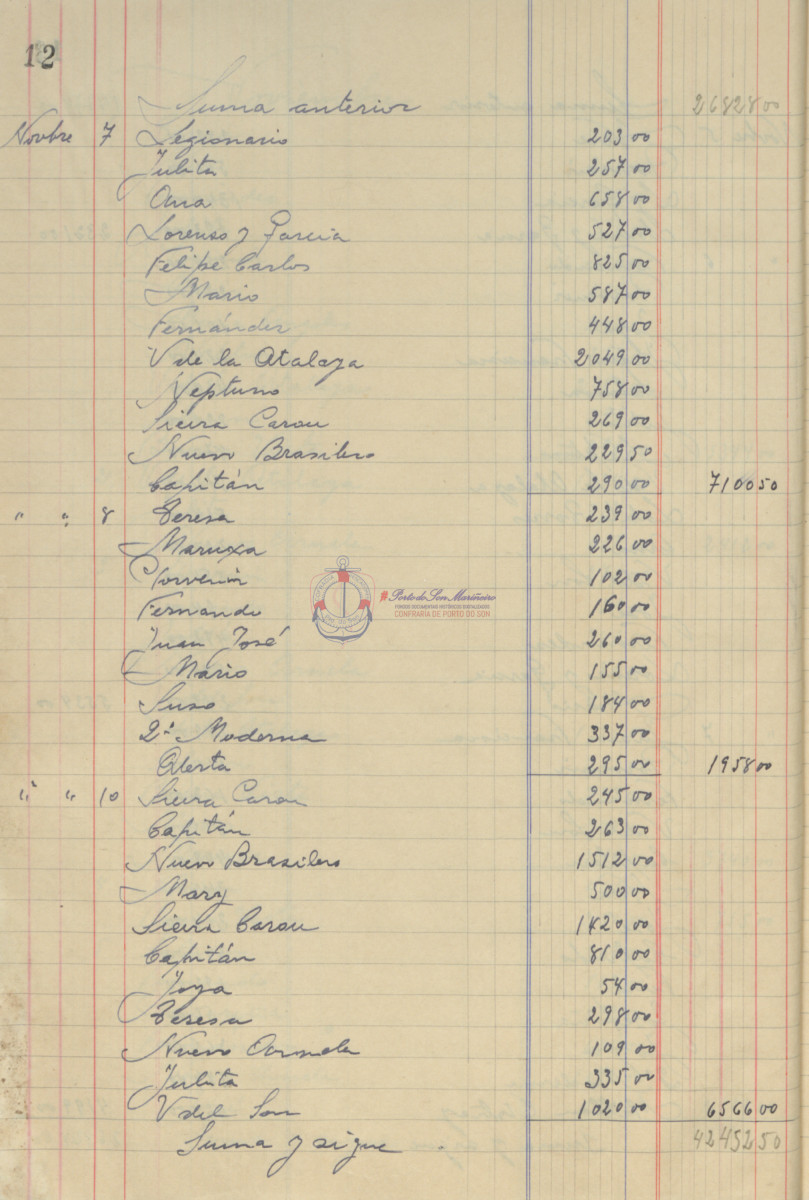 12
Suma anterior 26828 00
Novbre 7 Legionario 203 00
Julita 257 00
Ana 658 00
Lorenzo y Garcia 527 00
Felipe Carlos 825 00
Mario 587 00
Fernández 448 00
V de la Atalaya 2049 00
Neptuno 758 00
Sieira Carou 269 00
Nuevo Brasilero 229 50
Capitán 290 00 7100 50
" " 8 Teresa 239 00
Maruxa 226 00
Porvenir 102 00
Fernando 160 00
Juan José 260 00
Mario 155 00
Suso 184 00
2ª Moderna 337 00
Alerta 295 00 1958 00
" " 10 Sieira Carou 245 00
Capitán 263 00
Nuevo Brasilero 1512 00
Mary 500 00
Sieira Carou 1420 00
Capitán 810 00
Joya 54 00
Teresa 298 00
Nuevo Carmela 109 00
Julita 335 00
V del Son 1020 00 6566 00
Suma y sigue 42452 50
#Porto do Son Mariñeiro
FONDOS DOCUMENTAIS HISTÓRICOS DIXITALIZADOS
CONFRARÍA DE PORTO DO SON